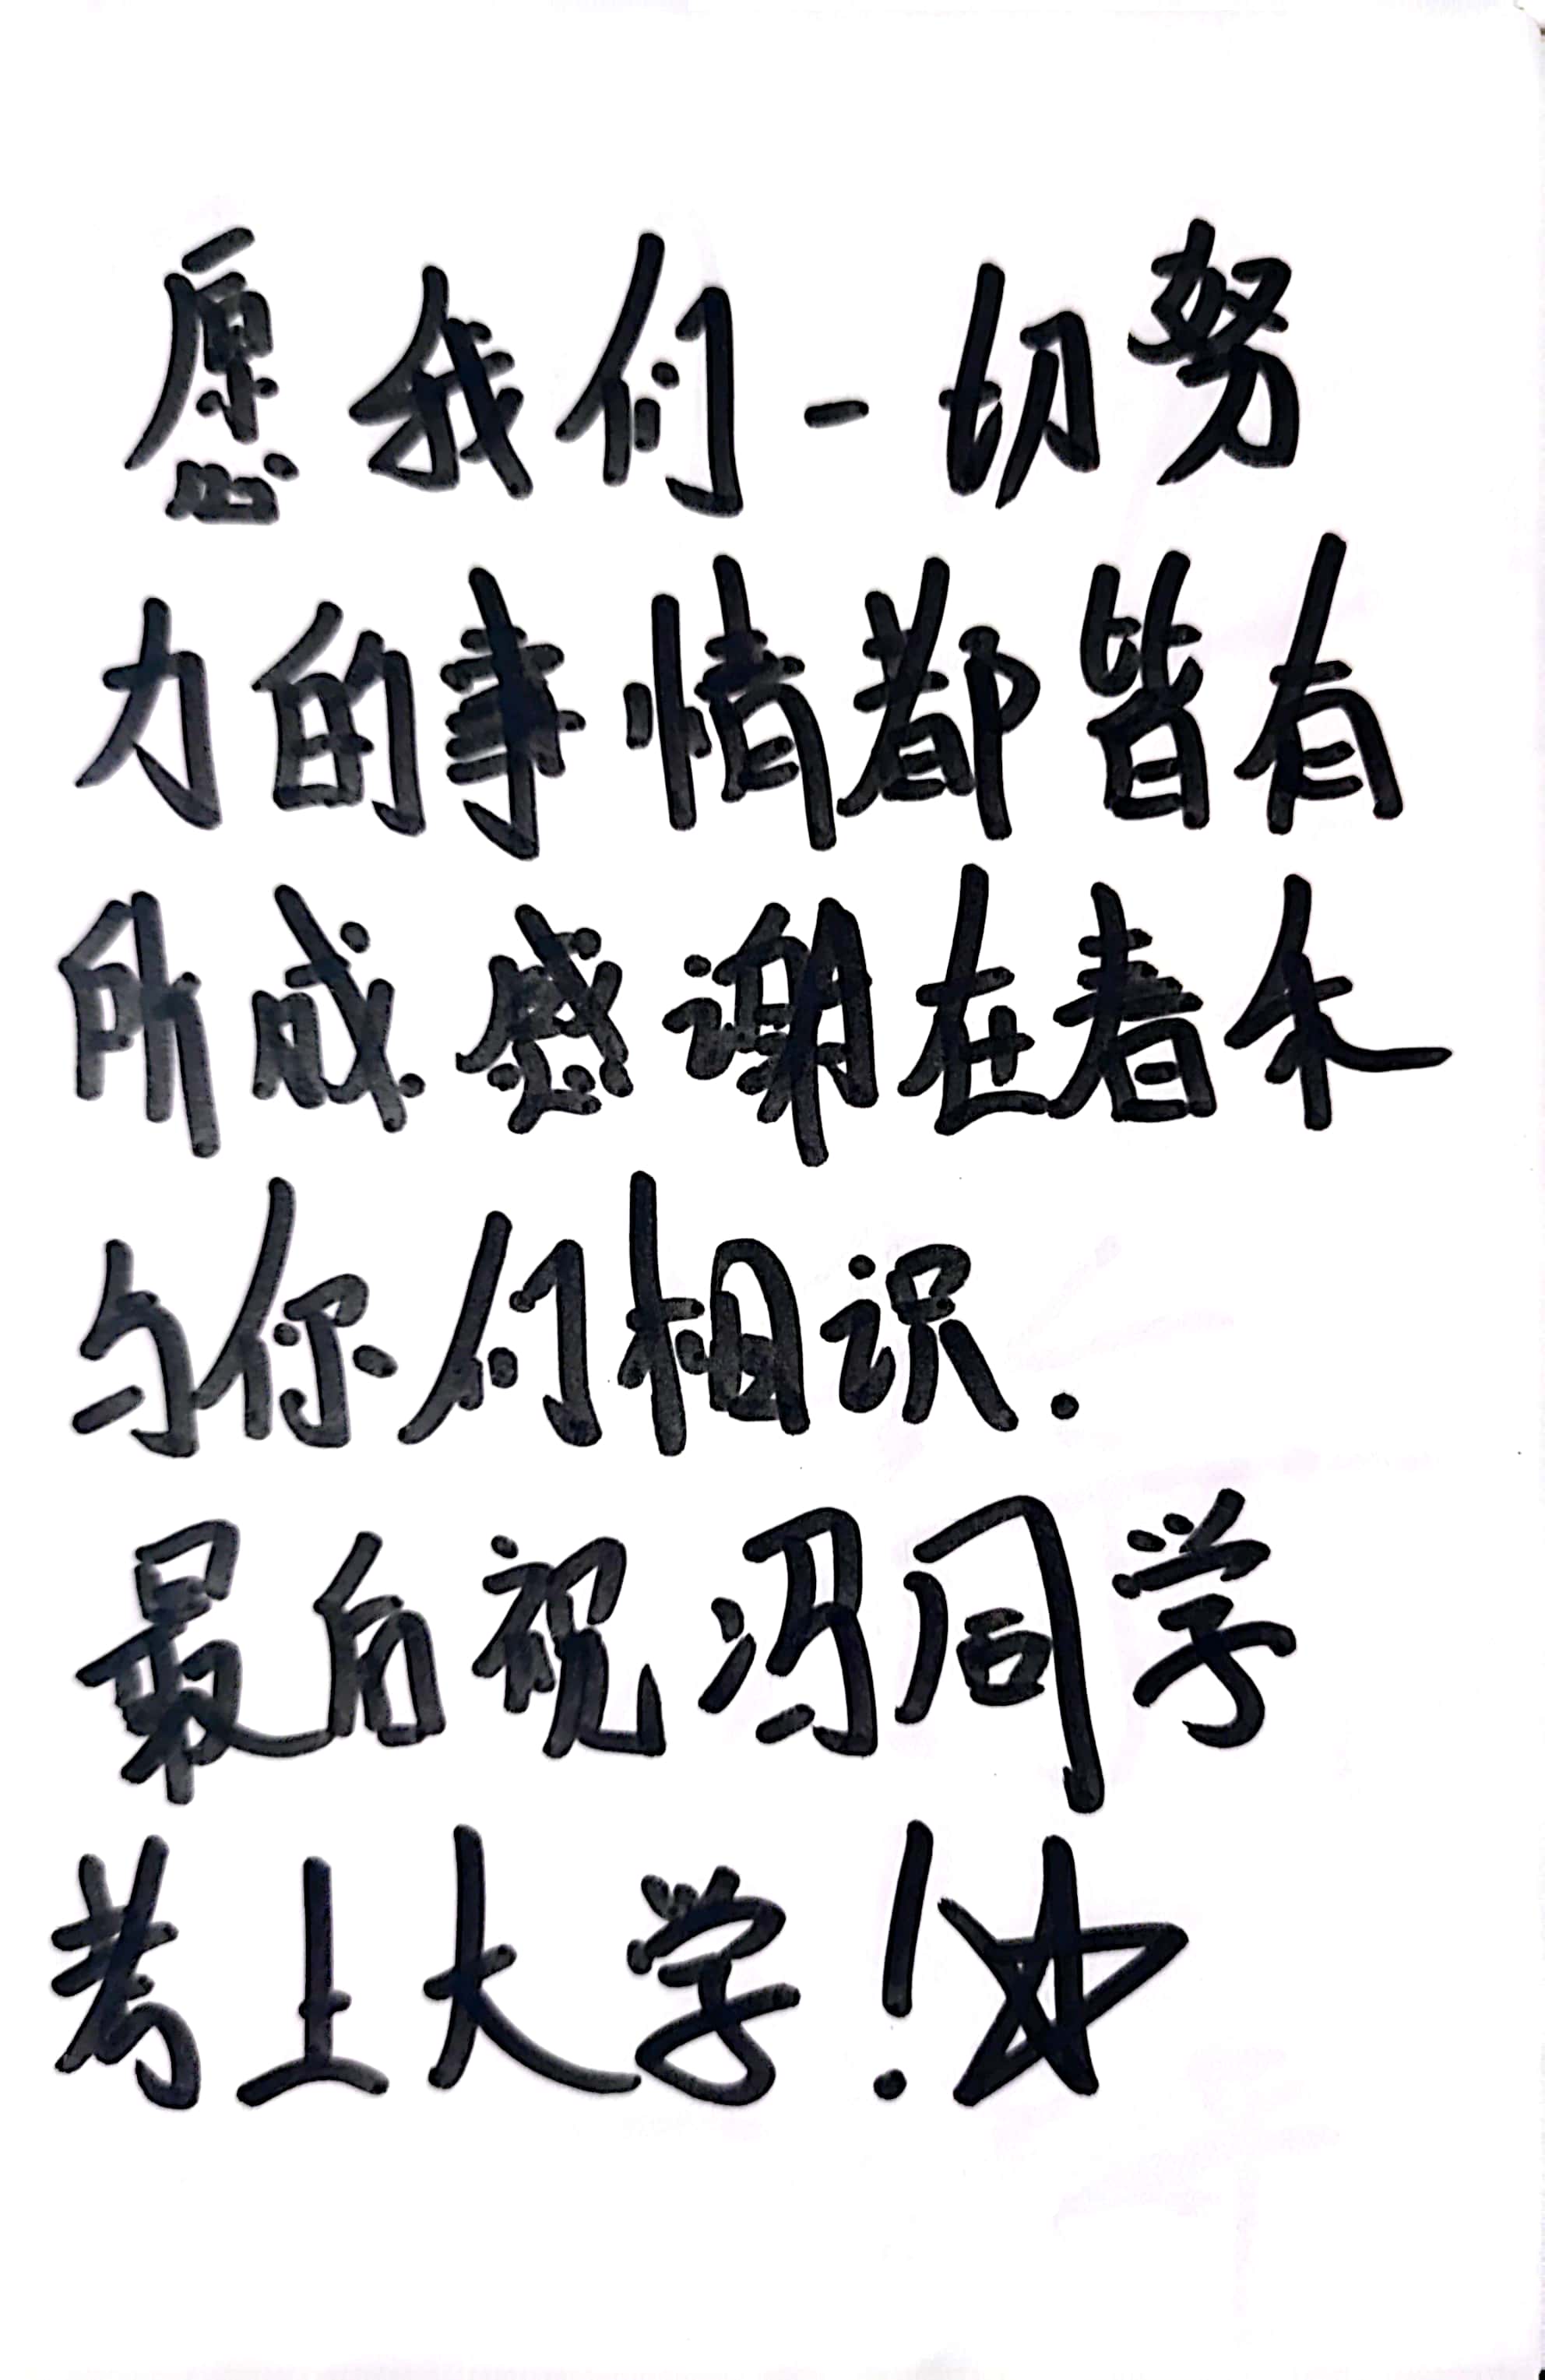 愿我们一切努
力的事情都皆有
所成.感谢在春禾
与你们相识.
最后祝冯同学
考上大学!☆